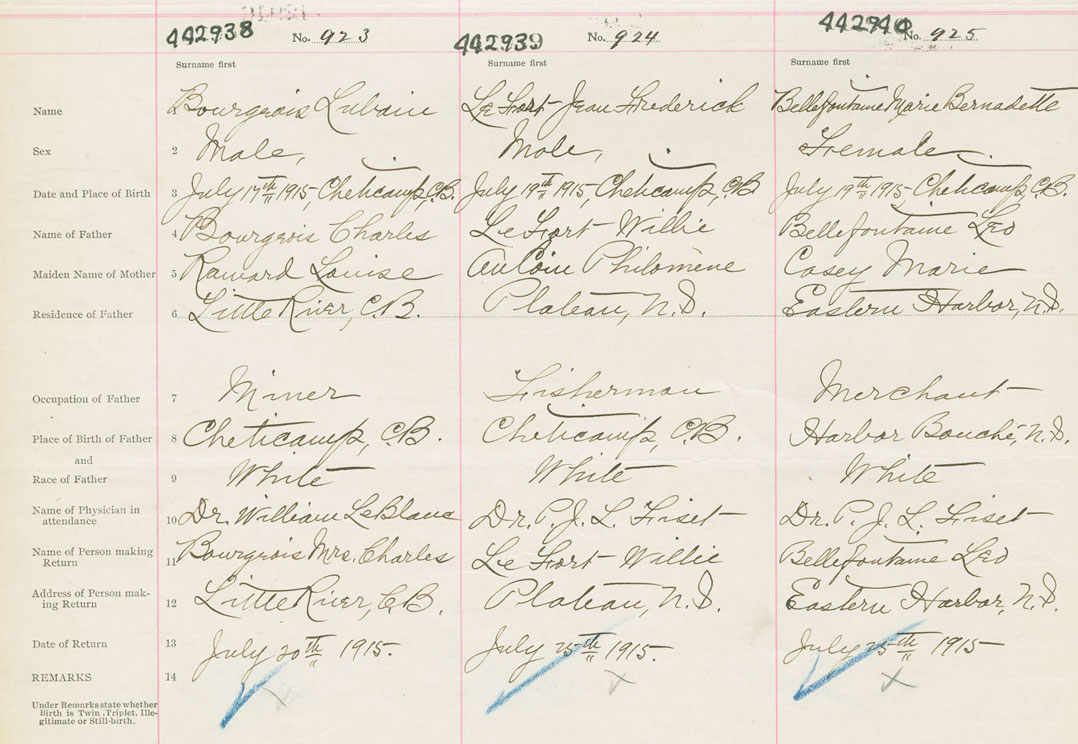 442938 No. 923 442939 No. 924 442940 No. 925
Surname first Surname first Surname first
Name 1 Bourgeois Lubain Le Fort Jean Frederick Bellefontaine Marie Bernadette
Sex 2 Male, Male, Female
Date and Place of Birth 3 July 17th 1915, Cheticamp, C.B. July 19th 1915, Cheticamp, C.B. July 19th 1915, Cheticamp, C.B.
Name of Father 4 Bourgeois Charles Le Fort Willie Bellefontaine Leo
Maiden Name of Mother 5 Ramard Louise AuCoin Philomène Casey Marie
Residence of Father 6 Little River, C.B. Plateau, N.S. Eastern Harbor, N.S.
Occupation of Father 7 Miner Fisherman Merchant
Place of Birth of Father 8 Cheticamp, C.B. Cheticamp, C.B. Harbor Bouché, N.S.
and
Race of Father 9 White White White
Name of Physician in
attendance 10 Dr. William LeBlanc Dr. P. J. L. Fiset Dr. P. J. L. Fiset
Name of Person making
Return 11 Bourgeois Mrs. Charles Le Fort Willie Bellefontaine Leo
Address of Person mak-
ing Return 12 Little River, C.B. Plateau, N.S. Eastern Harbor, N.S.
Date of Return 13 July 20th 1915. July 25th 1915. July 25th 1915
REMARKS 14
Under Remarks state whether
Birth is Twin, Triplet, Ille-
gitimate or Still-birth.